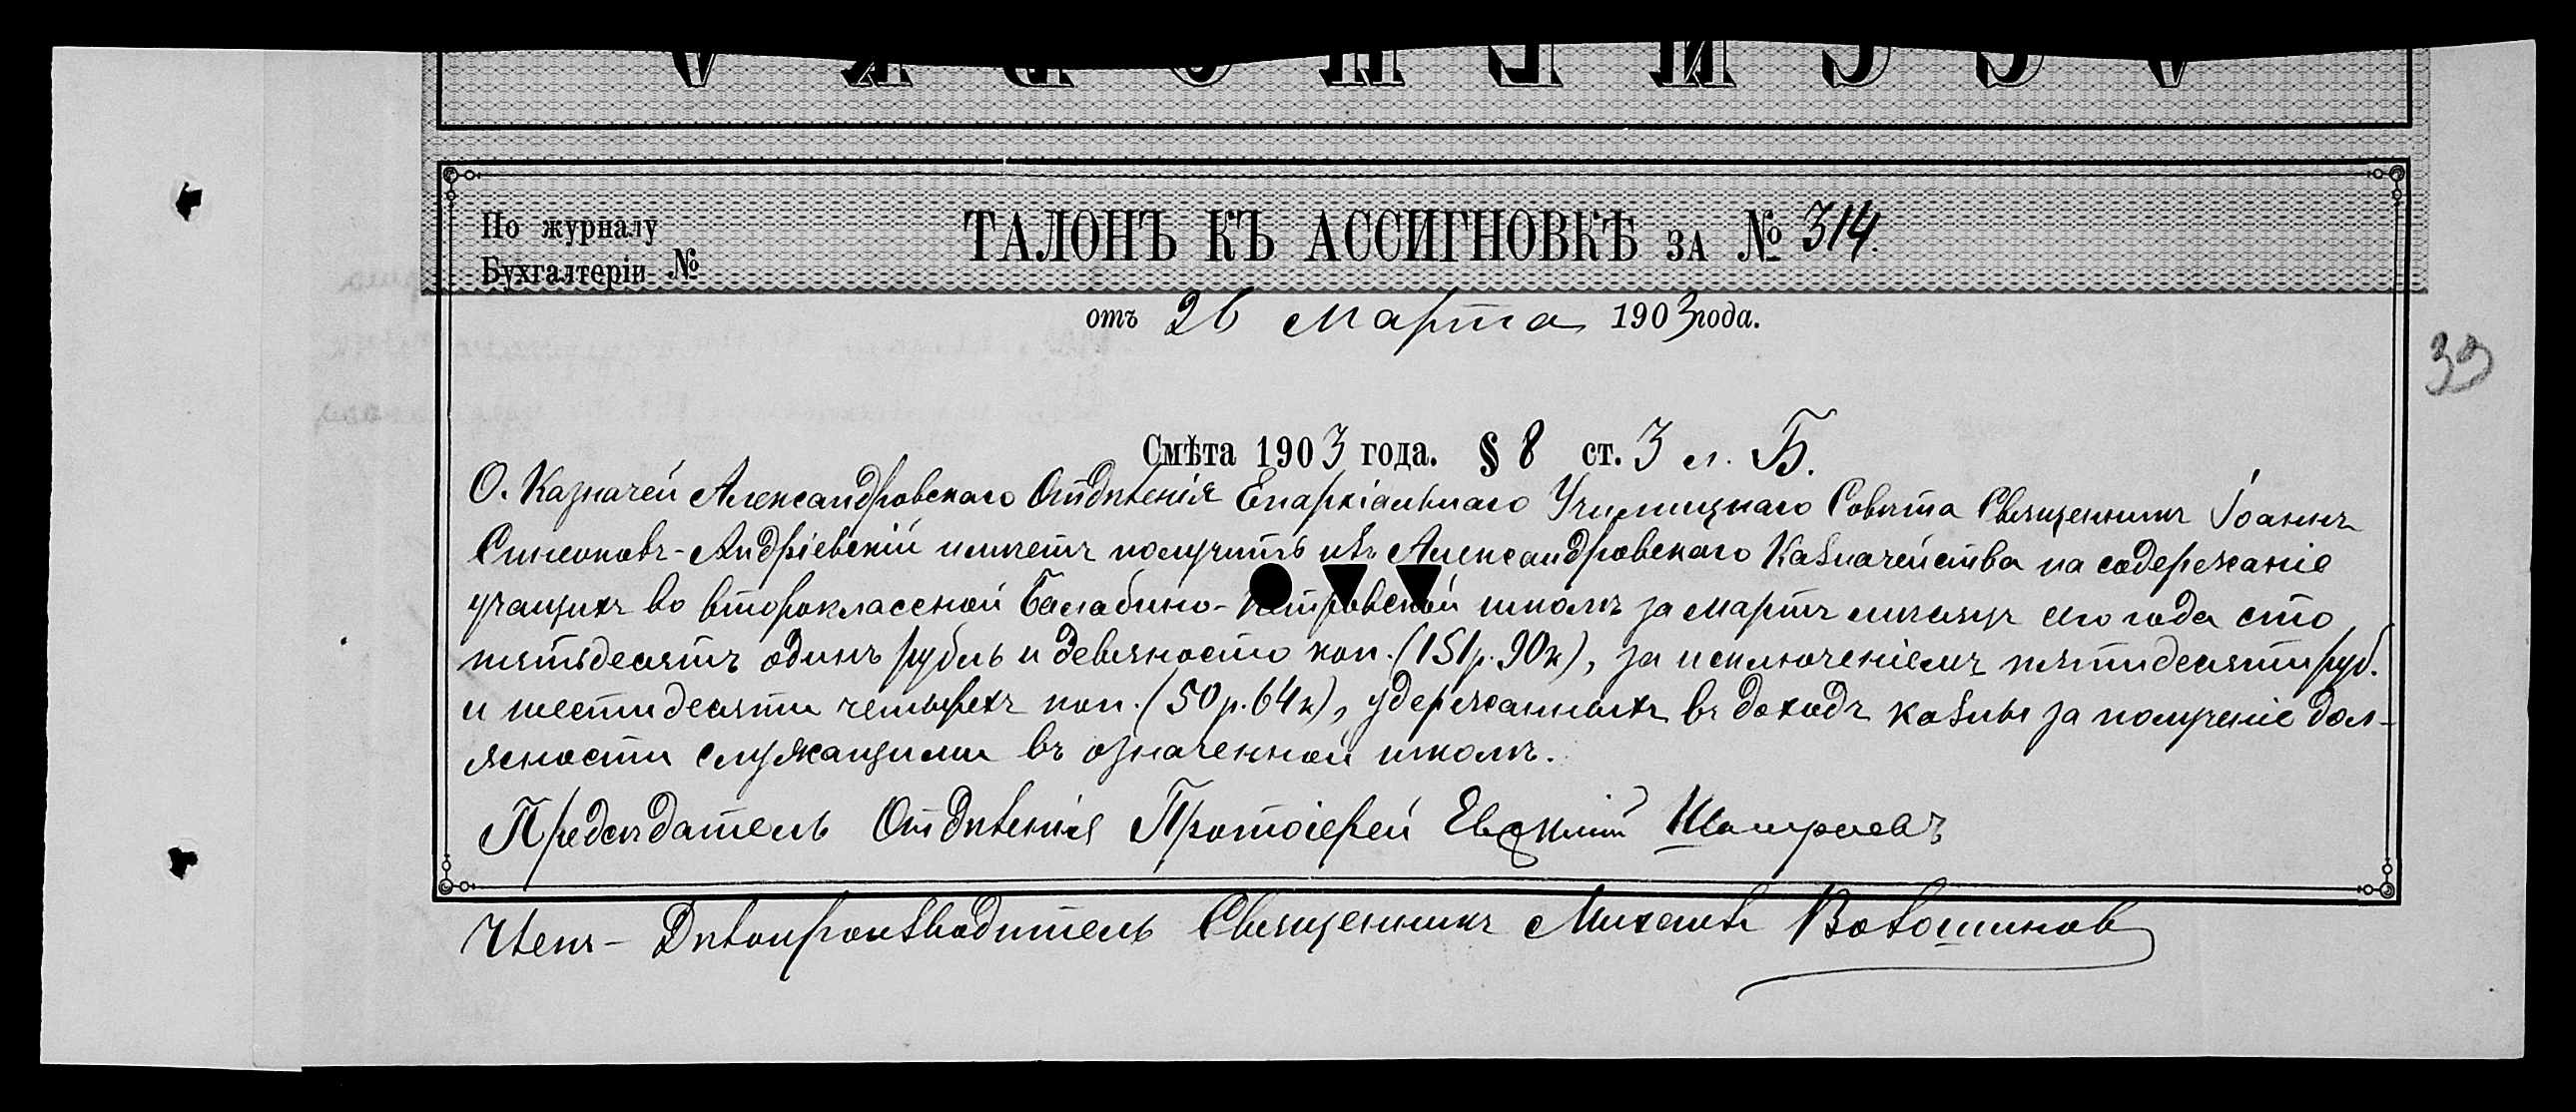 АССИГНОВКА
По журналу
Бухгалтеріи №
ТАЛОНЪ КЪ АССИГНОВКѢ ЗА № 314.
отъ 26 Марта 1903 года.
39
Смѣта 1903 года. § 8 ст. 3 л. Б.
О. Казначей Александровскаго Отдѣленія Епархіальнаго Училищнаго Совѣта Священникъ Іоаннъ
Симоновъ-Андріевскій имѣетъ получить изъ Александровскаго Казначейства на содержаніе
учащихъ во второклассной Балабино-Петровской школѣ за мартъ мѣсяцъ сего года сто
пятьдесятъ одинъ рубль и девяносто коп. (151 р. 90 к), за исключеніемъ пятидесяти руб.
и шестидесяти четырехъ коп. (50 р. 64 к), удержанныхъ въ доходъ казны за полученіе дол-
жности служащими въ означенной школѣ.
Предсѣдатель Отдѣленія Протоіерей
Членъ-Дѣлопроизводитель Священникъ Михаилъ Волошинов